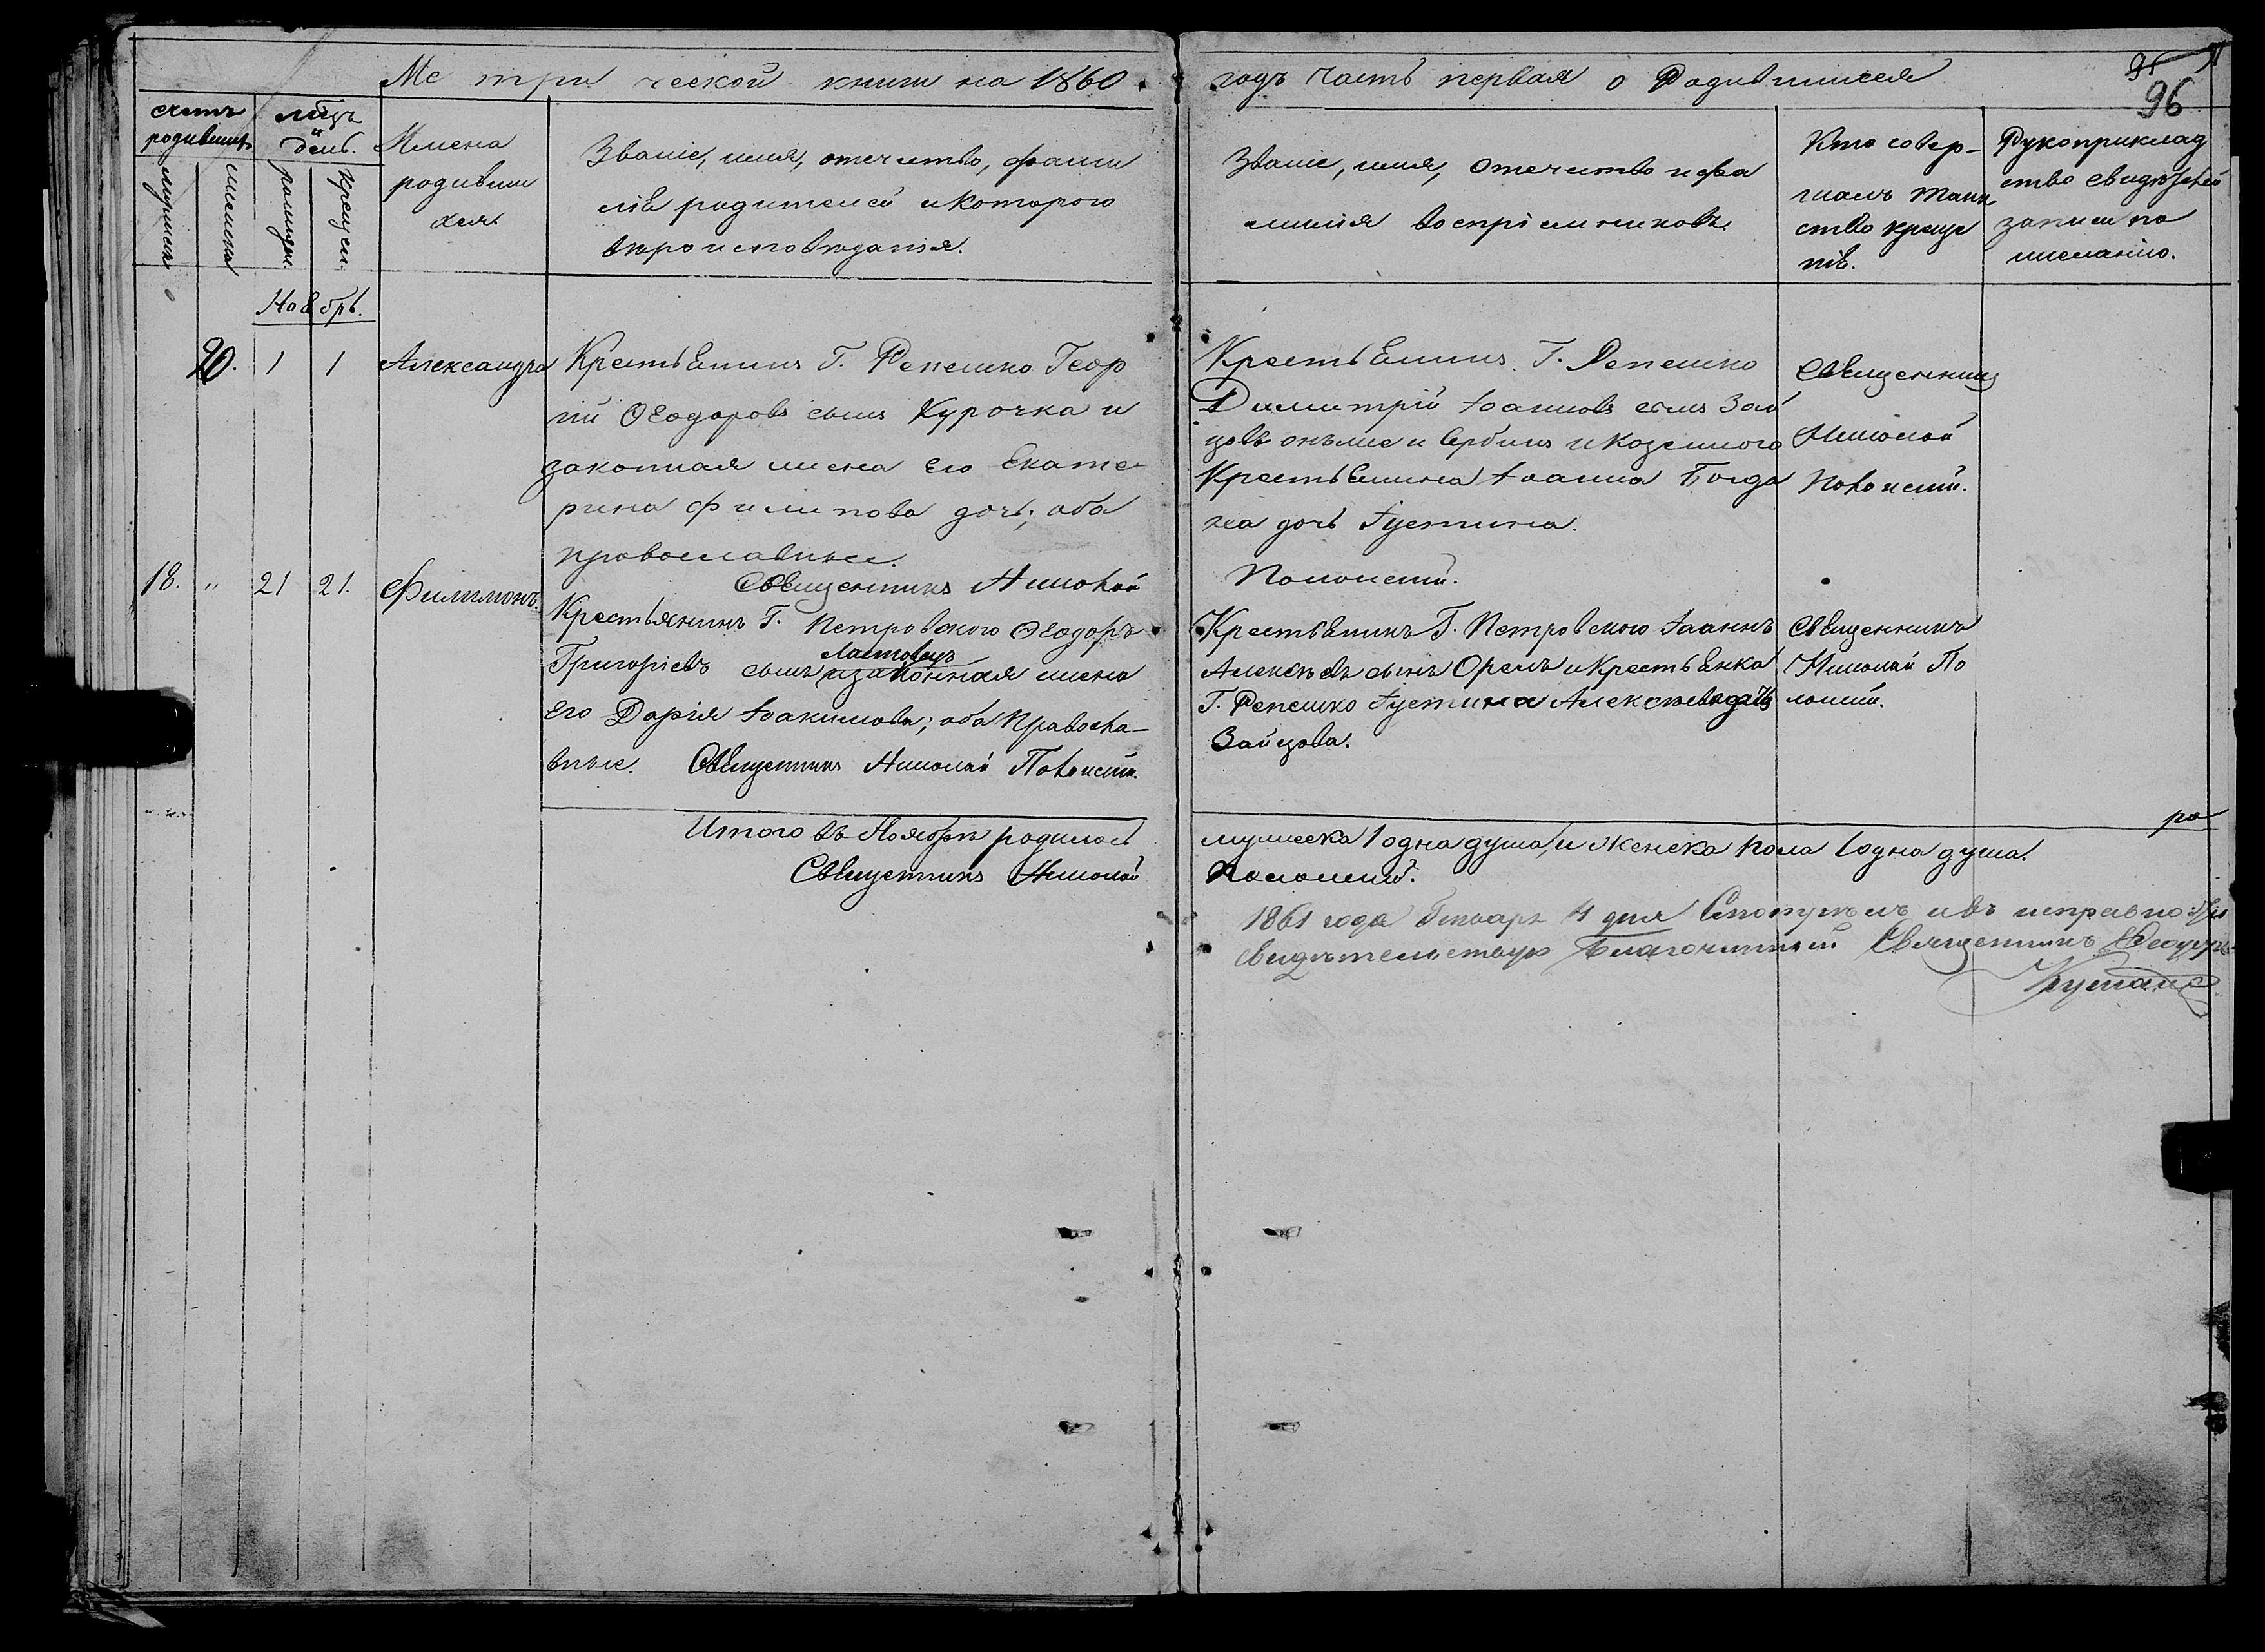 Метрической книги на 1860
годъ часть первая о Родившихся
95
96
счетъ родивших.
мѣсяцъ и день.
мужеска
женска
рожден.
крещен.
Имена
родивши
хся
Званіе, имя, отечество, фами
лія родителей и которого
вѣроисповѣданія.
Званіе, имя, отечество и фа
милія воспріемниковъ.
Кто совер-
шалъ таин
ство креще
нія.
Рукоприклад
ство свидѣтелей
записи по
желанію.
Ноябрь.
20. 1 1 Александра
Крестьянинъ Г. Репешко Геор
гій Ѳеодоровъ сынъ Курочка и
законная жена его Екате
рина Филипова дочь; оба
православные.
Священникъ Николай
Крестьянинъ Г. Репешко
Димитрій Іоанновъ сынъ Зай
цовъ и козенного
Крестьянина Іоанна Богда
на дочь Іустина.
Полонскій.
Священникъ
Николай
Полонскій.
18. " 21 21. Филимонъ.
Крестьянинъ Г. Петровского Ѳеодоръ
Ластовец
Григоріевъ сынъ и законная жена
его Дарія Іоакимова; оба Правосла-
вные. Священникъ Николай Полонскій.
Крестьянинъ Г. Петровского Іоаннъ
Алексѣевъ сынъ Орелъ и Крестьянка
Г. Репешко Іустина Алексѣева дочь
Зайцова.
Священникъ
Николай По
лонскій.
Итого въ Ноябрѣ родилось
Священникъ Николай
мужеска 1 одна душа, и женска пола 1 одна душа.
Полонскій.
1861 года Генваря 4 дня
свидѣтельствую Благочинный Священникъ Ѳеодоръ